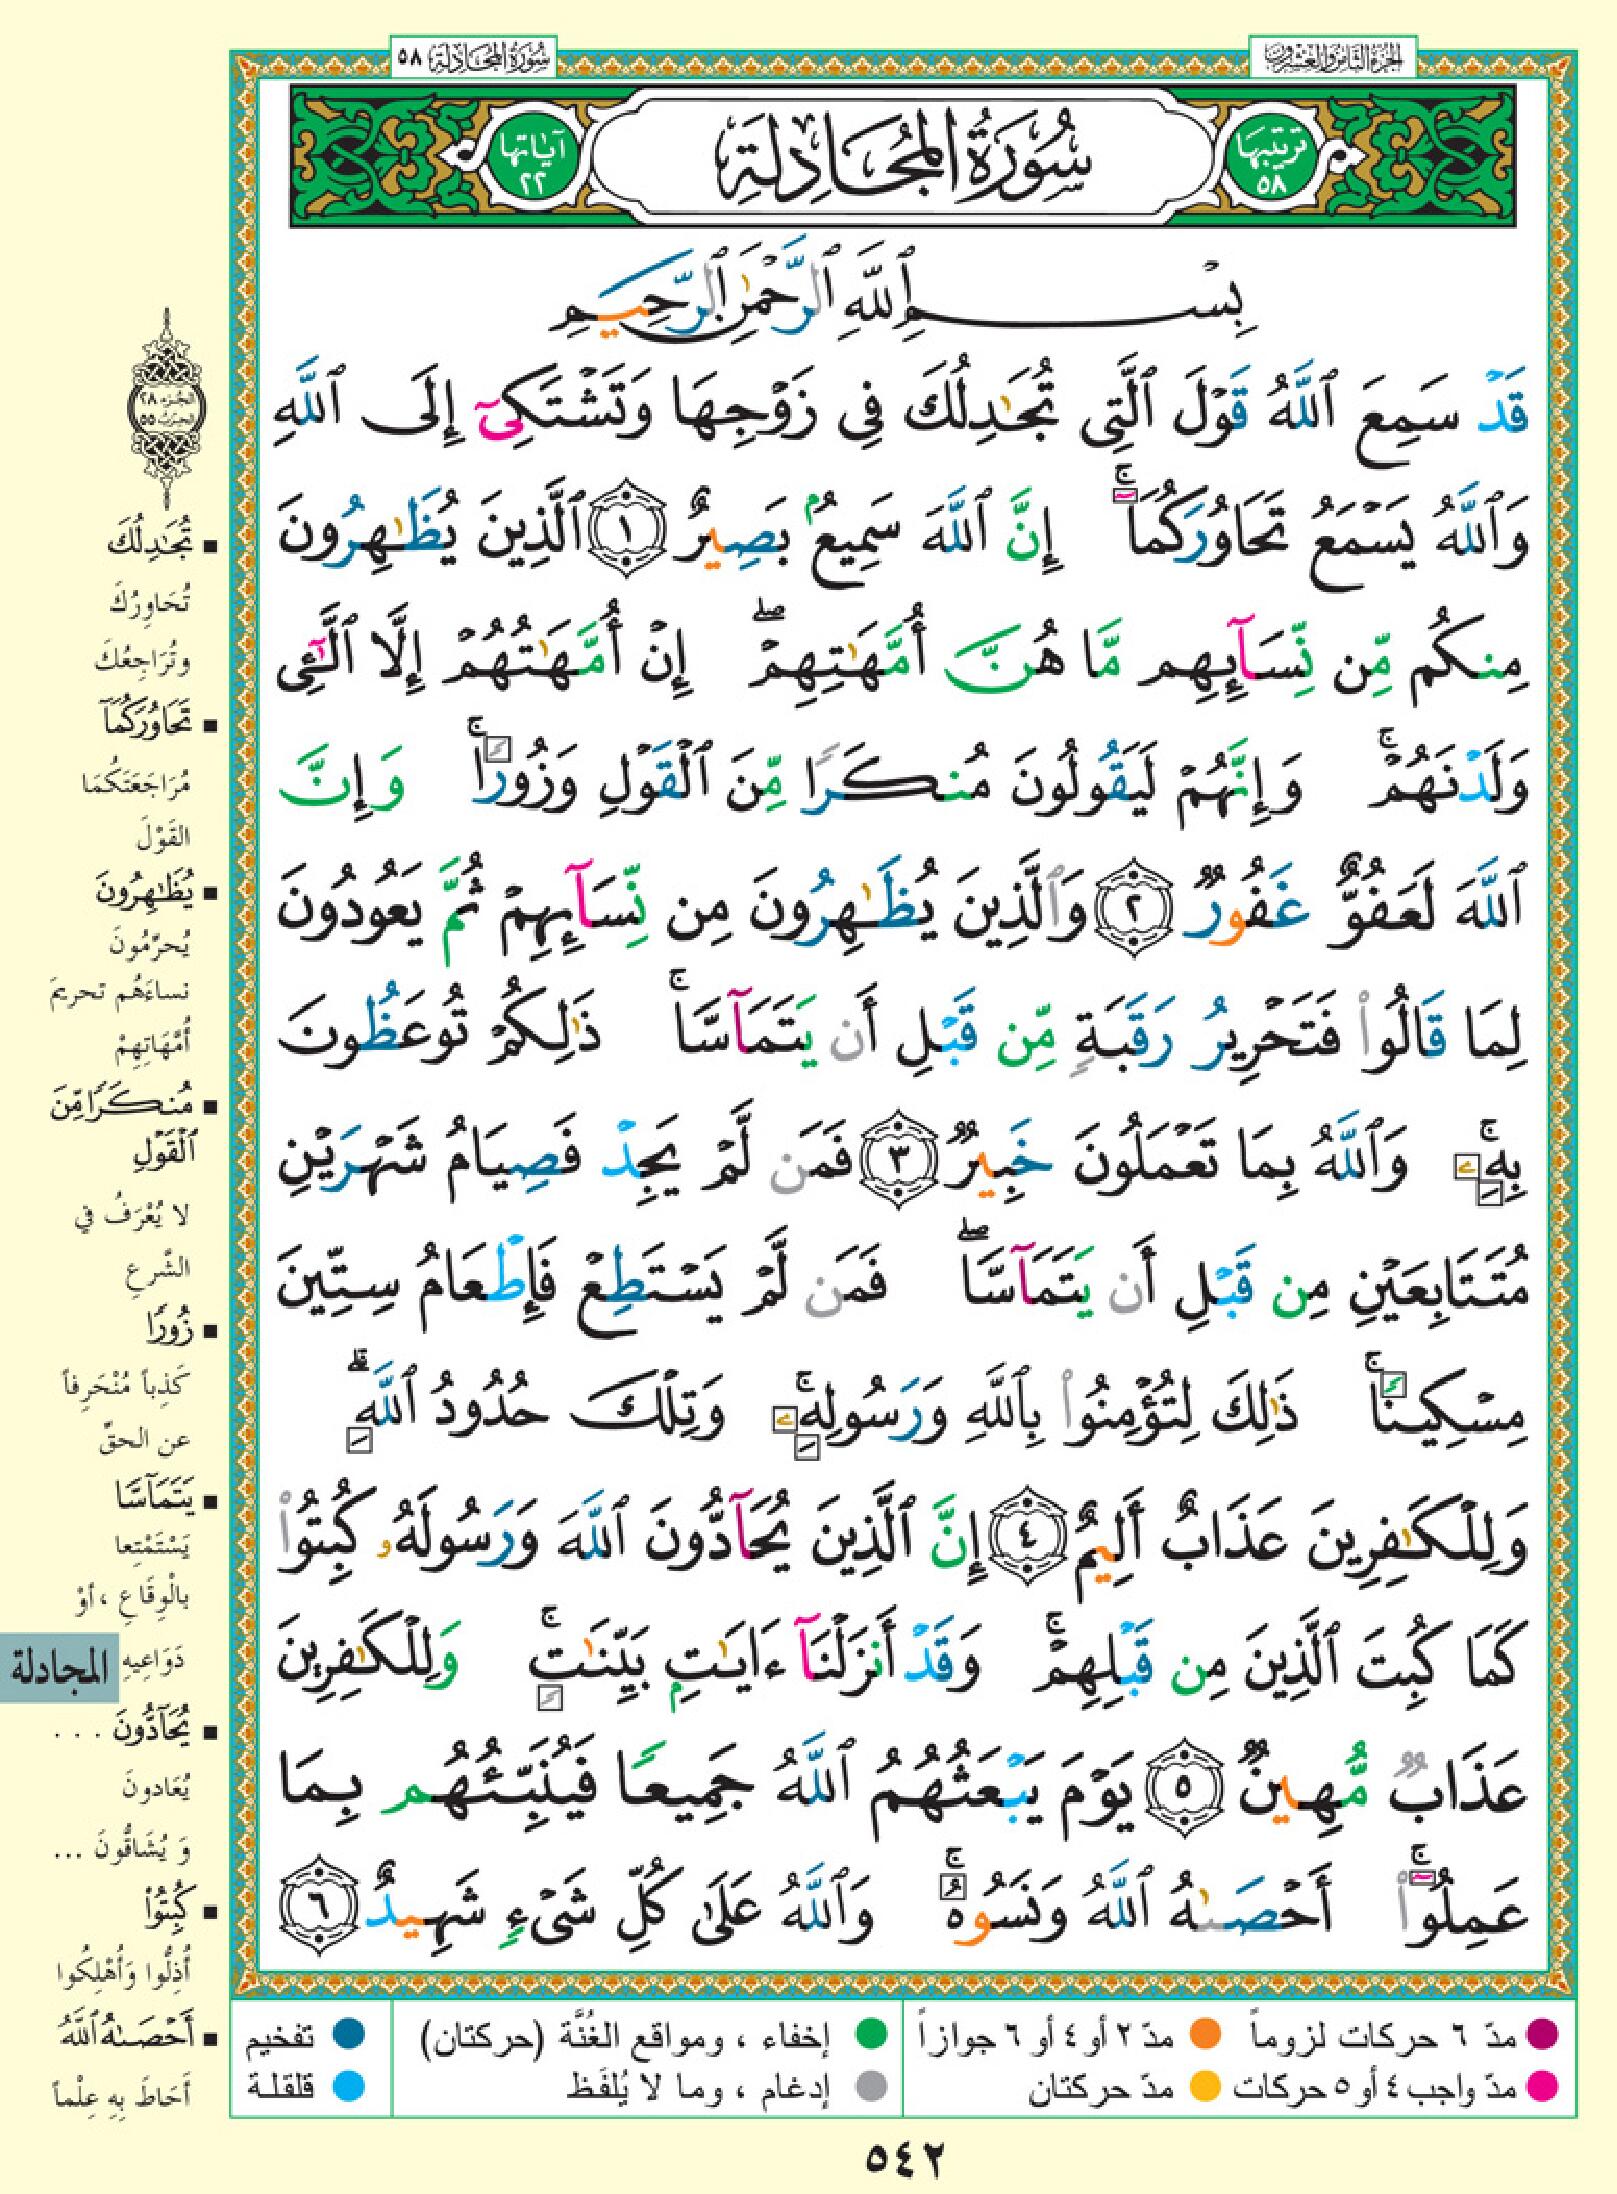 الجزء الثامن والعشرون
سورة المجادلة ٥٨
ترتيبها ٥٨
سُورَةُ المُجَادِلَةِ
آياتها ٢٢
بِسْمِ ٱللَّهِ ٱلرَّحْمَٰنِ ٱلرَّحِيمِ
قَدْ سَمِعَ ٱللَّهُ قَوْلَ ٱلَّتِى تُجَٰدِلُكَ فِى زَوْجِهَا وَتَشْتَكِىٓ إِلَى ٱللَّهِ
وَٱللَّهُ يَسْمَعُ تَحَاوُرَكُمَآ ۚ إِنَّ ٱللَّهَ سَمِيعٌۢ بَصِيرٌ ١ ٱلَّذِينَ يُظَٰهِرُونَ
مِنكُم مِّن نِّسَآئِهِم مَّا هُنَّ أُمَّهَٰتِهِمْ ۖ إِنْ أُمَّهَٰتُهُمْ إِلَّا ٱلَّٰٓـِٔى
وَلَدْنَهُمْ ۚ وَإِنَّهُمْ لَيَقُولُونَ مُنكَرًا مِّنَ ٱلْقَوْلِ وَزُورًا ۚ وَإِنَّ
ٱللَّهَ لَعَفُوٌّ غَفُورٌ ٢ وَٱلَّذِينَ يُظَٰهِرُونَ مِن نِّسَآئِهِمْ ثُمَّ يَعُودُونَ
لِمَا قَالُوا۟ فَتَحْرِيرُ رَقَبَةٍ مِّن قَبْلِ أَن يَتَمَآسَّا ۚ ذَٰلِكُمْ تُوعَظُونَ
بِهِۦ ۚ وَٱللَّهُ بِمَا تَعْمَلُونَ خَبِيرٌ ٣ فَمَن لَّمْ يَجِدْ فَصِيَامُ شَهْرَيْنِ
مُتَتَابِعَيْنِ مِن قَبْلِ أَن يَتَمَآسَّا ۖ فَمَن لَّمْ يَسْتَطِعْ فَإِطْعَامُ سِتِّينَ
مِسْكِينًا ۚ ذَٰلِكَ لِتُؤْمِنُوا۟ بِٱللَّهِ وَرَسُولِهِۦ ۚ وَتِلْكَ حُدُودُ ٱللَّهِ ۗ
وَلِلْكَٰفِرِينَ عَذَابٌ أَلِيمٌ ٤ إِنَّ ٱلَّذِينَ يُحَآدُّونَ ٱللَّهَ وَرَسُولَهُۥ كُبِتُوا۟
كَمَا كُبِتَ ٱلَّذِينَ مِن قَبْلِهِمْ ۚ وَقَدْ أَنزَلْنَآ ءَايَٰتٍۭ بَيِّنَٰتٍ ۚ وَلِلْكَٰفِرِينَ
عَذَابٌ مُّهِينٌ ٥ يَوْمَ يَبْعَثُهُمُ ٱللَّهُ جَمِيعًا فَيُنَبِّئُهُم بِمَا
عَمِلُوٓا۟ ۚ أَحْصَىٰهُ ٱللَّهُ وَنَسُوهُ ۚ وَٱللَّهُ عَلَىٰ كُلِّ شَىْءٍ شَهِيدٌ ٦
الجزء ٢٨
الحزب ٥٥
تُجَٰدِلُكَ
تُحَاوِرُكَ
وتُرَاجِعُكَ
تَحَاوُرَكُمَآ
مُرَاجَعَتَكُمَا
القَوْلَ
يُظَٰهِرُونَ
يُحرِّمُونَ
نساءَهُم تحريمَ
أُمَّهَاتِهِمْ
مُنكَرًا مِّنَ
ٱلْقَوْلِ
لا يُعْرَفُ في
الشَّرعِ
زُورًا
كَذِباً مُنْحَرِفاً
عن الحقِّ
يَتَمَآسَّا
يَسْتَمْتِعا
بالْوِقَاعِ ، أوْ
دَوَاعِيهِ
المجادلة
يُحَآدُّونَ ...
يُعَادونَ
وَ يُشَاقُّونَ ...
كُبِتُوا۟
أُذِلُّوا وَأُهْلِكُوا
أَحْصَىٰهُ ٱللَّهُ
أَحَاطَ بِهِ عِلْماً
مدّ ٦ حركات لزوماً
مدّ ٢ أو ٤ أو ٦ جوازاً
إخفاء ، ومواقع الغُنَّة (حركتان)
تفخيم
مدّ واجب ٤ أو ٥ حركات
مدّ حركتان
إدغام ، وما لا يُلفَظ
قلقلة
٥٤٢